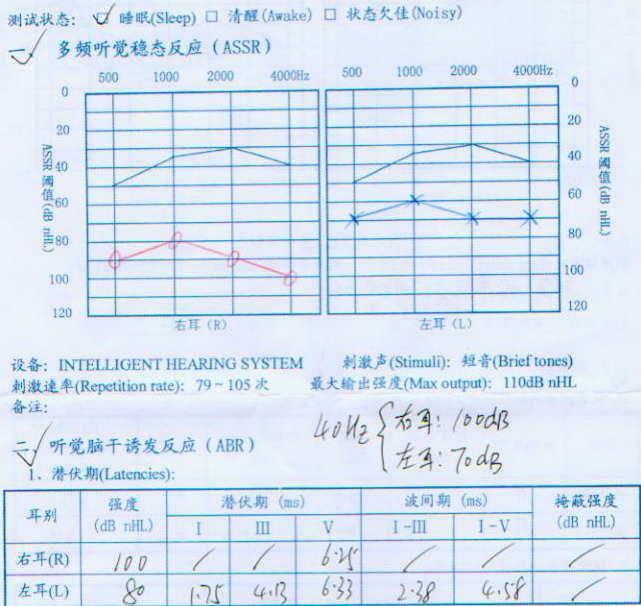 测试状态： ☑ 睡眠(Sleep) □ 清醒(Awake) □ 状态欠佳(Noisy)
一、 多频听觉稳态反应（ASSR）
500 1000 2000 4000Hz 500 1000 2000 4000Hz
0 0
20 20
40 40
60 60
80 80
100 100
120 120
ASSR 阈值(dB nHL) ASSR 阈值(dB nHL)
右耳（R） 左耳（L）
设备： INTELLIGENT HEARING SYSTEM 刺激声(Stimuli)： 短音(Brief tones)
刺激速率(Repetition rate)： 79~105 次 最大输出强度(Max output)： 110dB nHL
备注：
40Hz { 右耳：100dB
左耳：70dB
二、 听觉脑干诱发反应（ABR）
1、潜伏期(Latencies)：
耳别 强度 (dB nHL) 潜伏期 (ms) 波间期 (ms) 掩蔽强度 (dB nHL)
I III V I-III I-V
右耳(R) 100 / / 6.25 / / /
左耳(L) 80 1.75 4.13 6.33 2.38 4.58 /